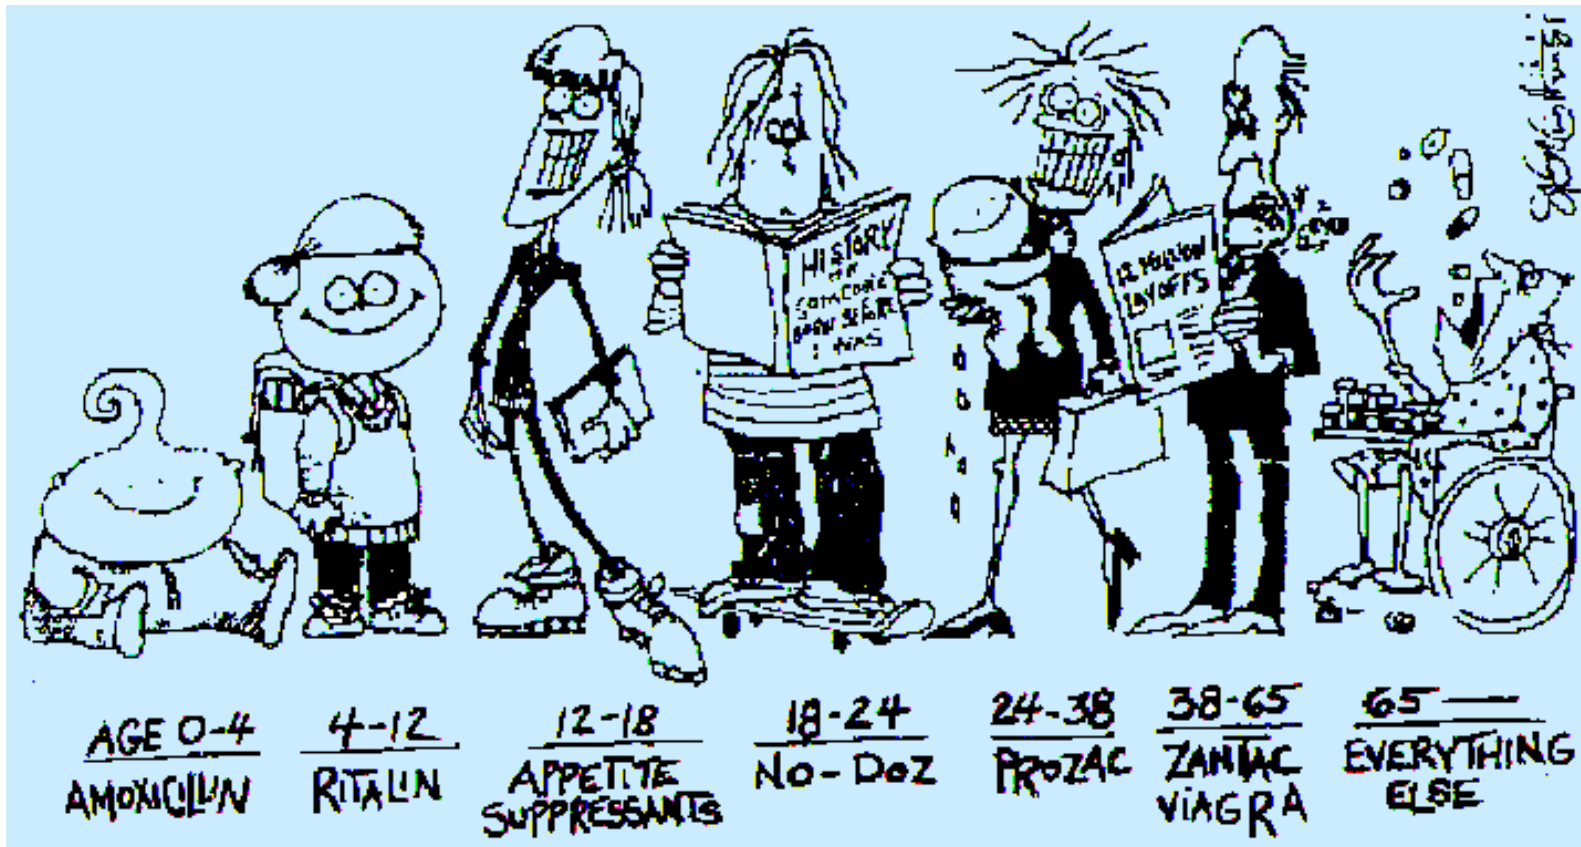 HISTORY
OF
SOMEBODY
BORN BEFORE
I WAS
1.2 MILLION
LAYOFFS
AGE 0-4
AMOXICILLIN
4-12
RITALIN
12-18
APPETITE
SUPPRESSANTS
18-24
NO-DOZ
24-38
PROZAC
38-65
ZANTAC
VIAGRA
65 —
EVERYTHING
ELSE